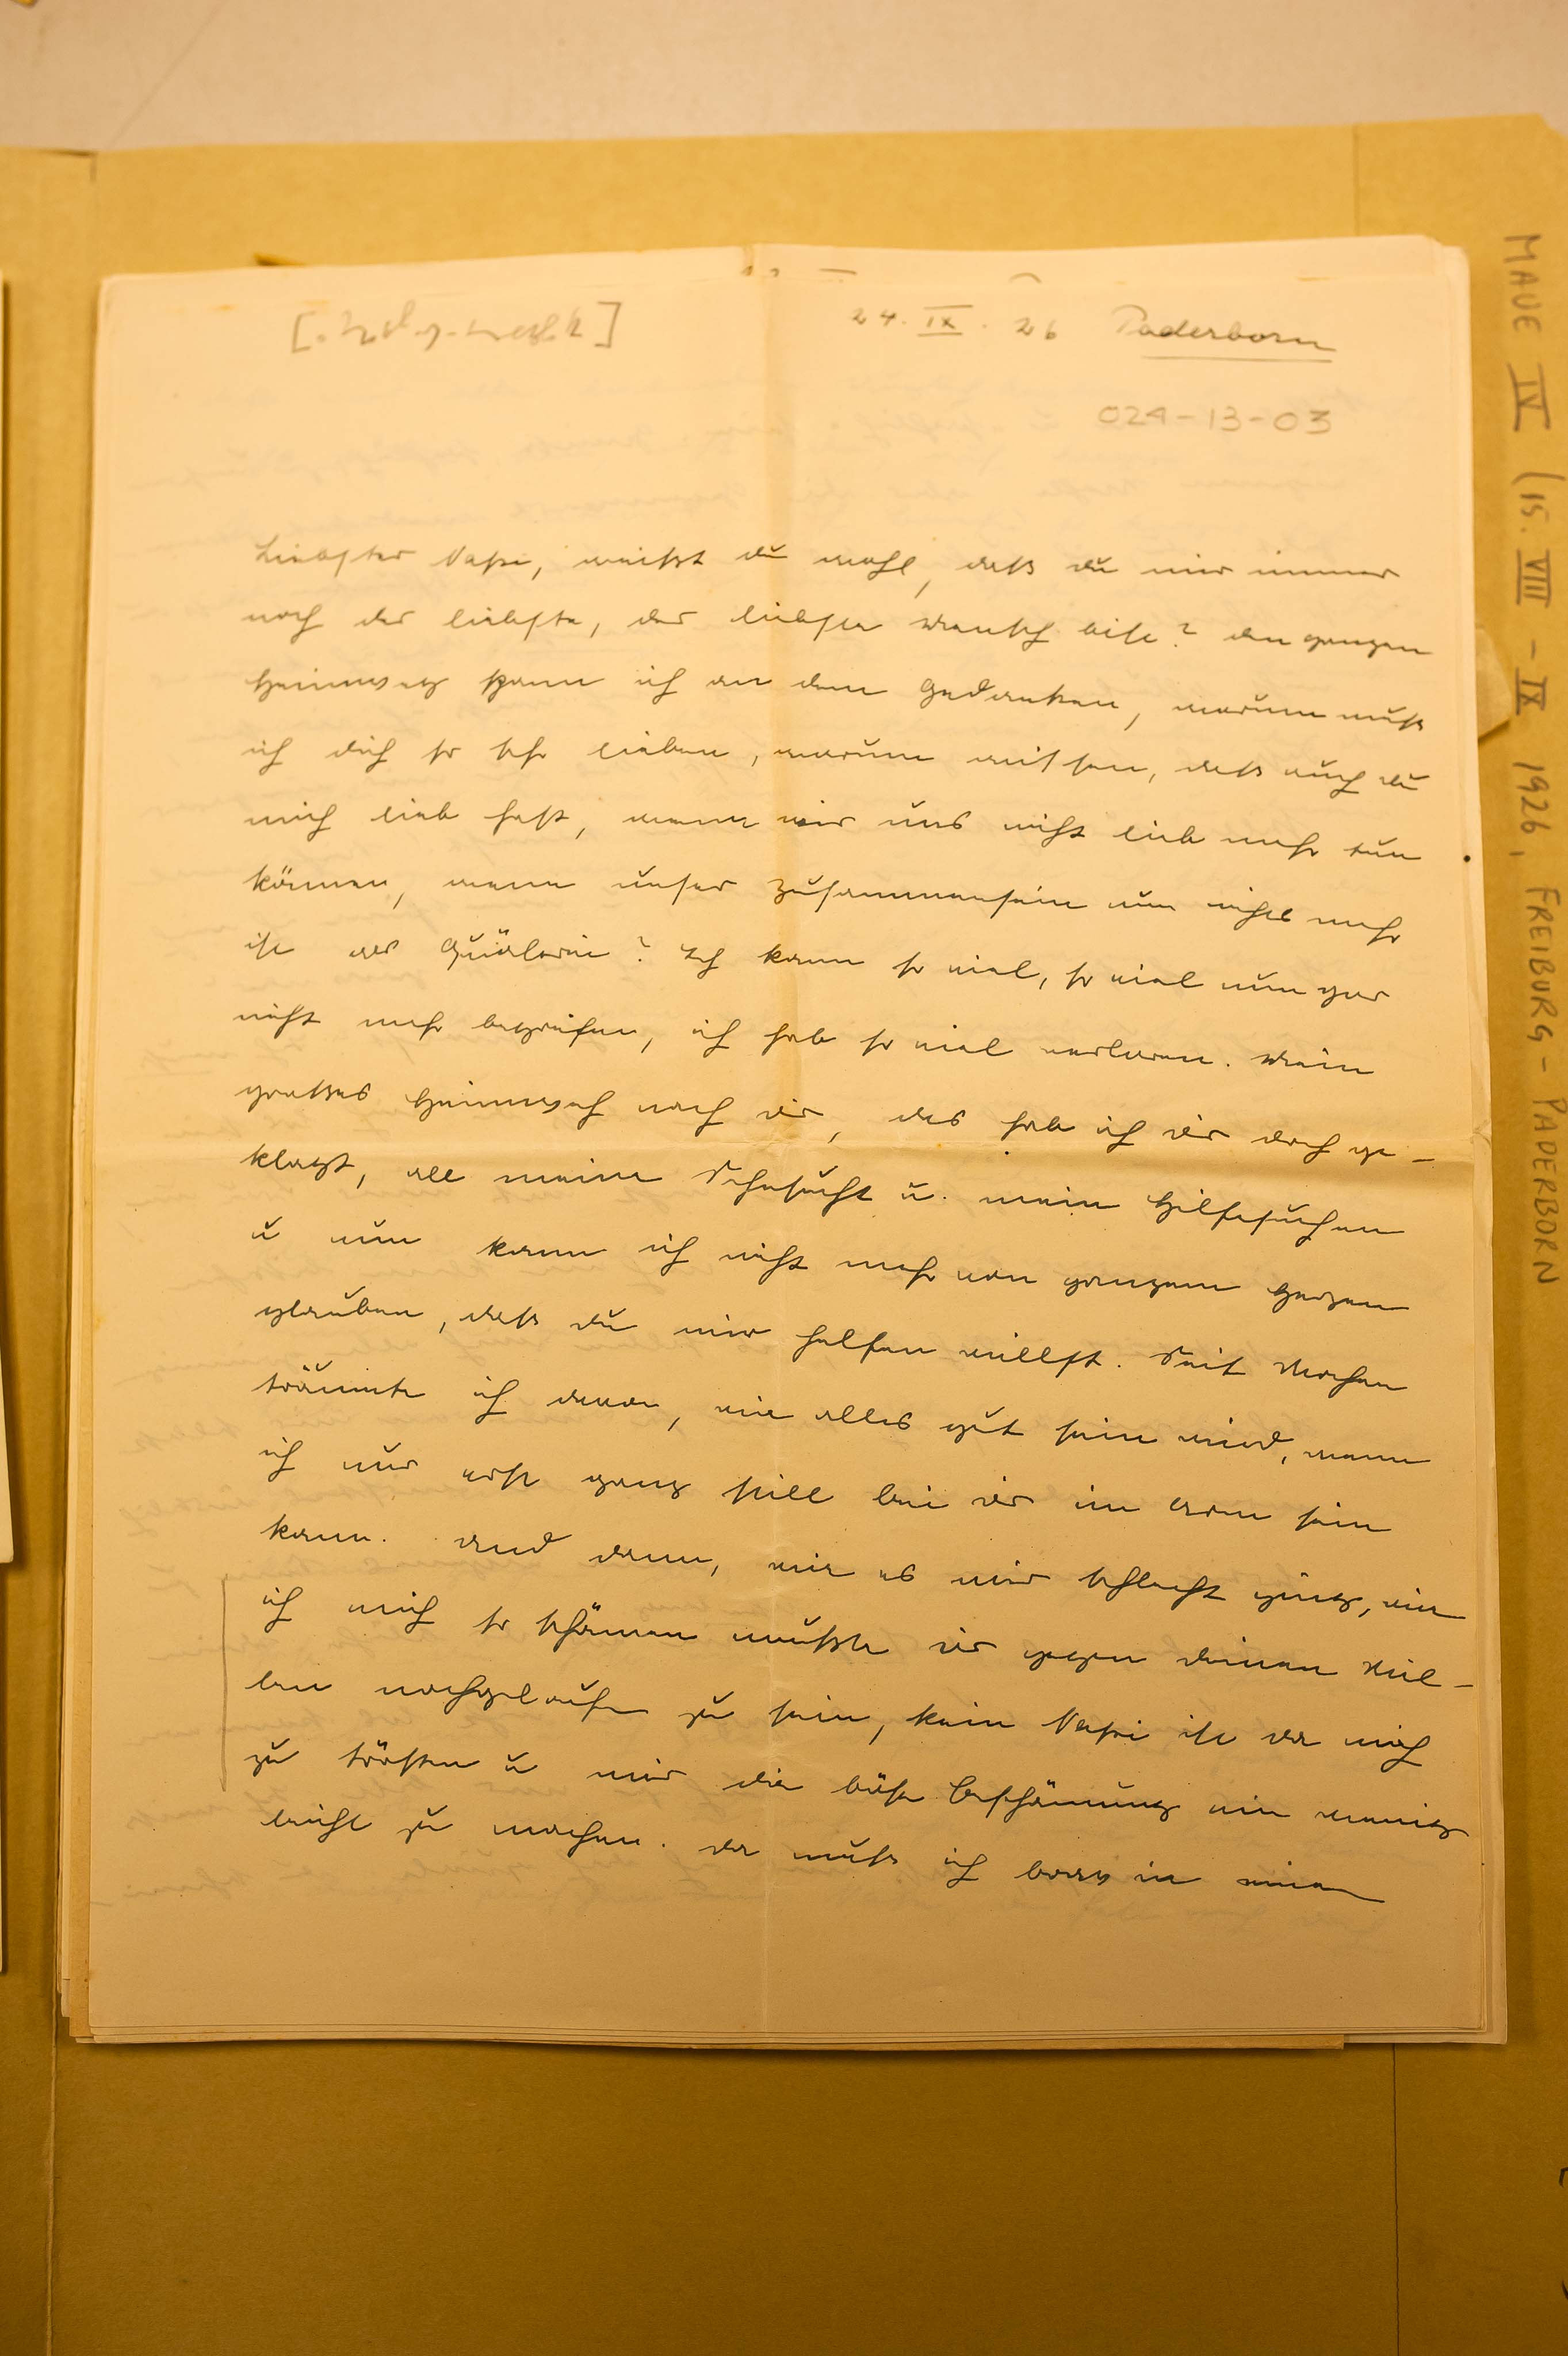 24. IX. 26 Paderborn
024-13-03
Liebster Vasi, weißt du wohl, daß du mir immer
noch der liebste, der liebste Mensch bist? Den ganzen
Heimweg spann ich an dem Gedanken, warum muß
ich dich so sehr lieben, warum wissen, daß auch du
mich lieb hast, wenn wir uns nicht lieb mehr tun
können, wenn unser Zusammensein nun nichts mehr
ist als Quälerei? Ich kann so viel, so viel nun gar
nicht mehr begreifen, ich hab so viel verloren. Mein
großes Heimweh nach dir, das hab ich dir doch ge-
klagt, all meine Sehnsucht u. mein Hilfesuchen
u nun kann ich nicht mehr von ganzem Herzen
glauben, daß du mir helfen willst. Seit Wochen
träumte ich davon, wie alles gut sein wird, wenn
ich nur erst ganz still bei dir im Arm sein
kann. Und dann, wie es mir schlecht ging, wie
ich mich so schämen mußte dir gegen deinen Wil-
len nachgelaufen zu sein, kein Vasi ist da mich
zu trösten u mir die böse Beschämung ein wenig
leicht zu machen. Da muß ich brav in
MAUE IV (15. VIII - IX 1926, FREIBURG - PADERBORN